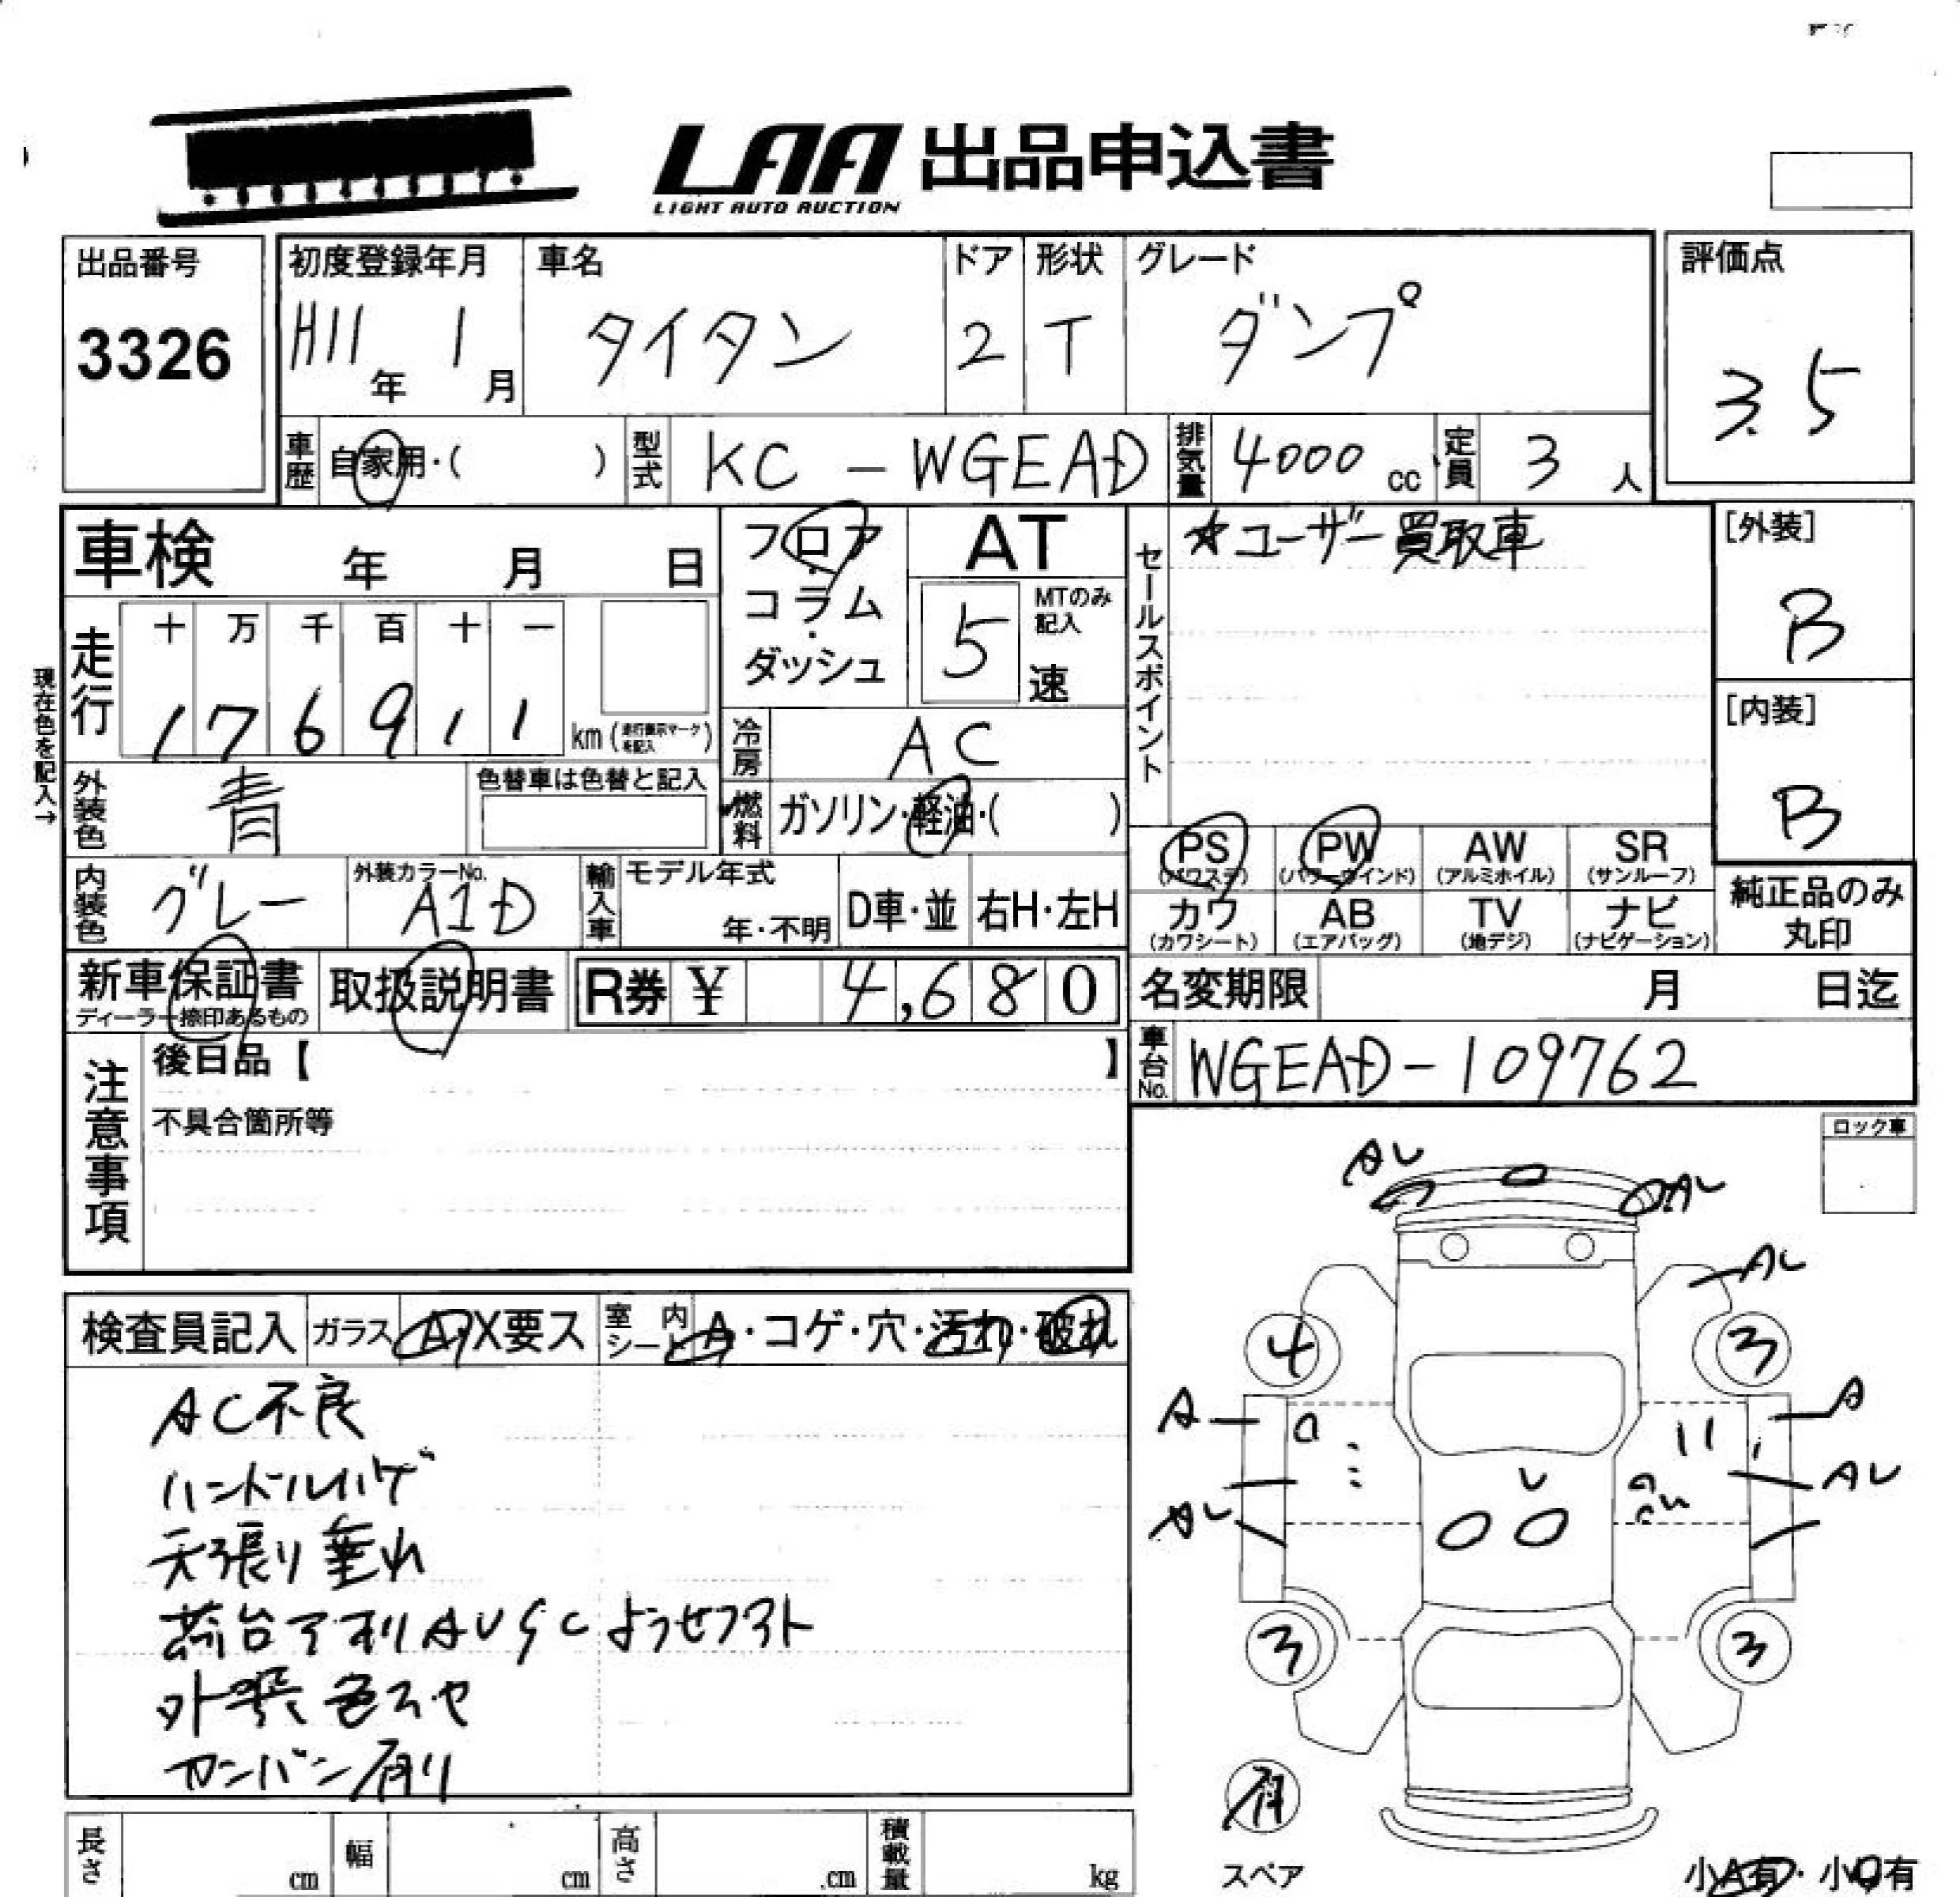 LAA 出品申込書
LIGHT AUTO AUCTION
出品番号
3326
初度登録年月
H11年 1月
車名
タイタン
ドア
2
形状
T
グレード
ダンプ
評価点
3.5
車歴 自家用・( )
型式 KC-WGEAD
排気量 4000 cc
定員 3 人
車検 年 月 日
フロア・コラム・ダッシュ
AT
5 速
MTのみ記入
セールスポイント
☆ユーザー買取車
[外装]
B
[内装]
B
現在色を記入→
走行
十 万 千 百 十 一
1 7 6 9 1 1 km (走行表示マークを記入)
冷房 AC
燃料 ガソリン・軽油・( )
外装色 青
色替車は色替と記入
内装色 グレー
外装カラーNo.
A1D
輸入車 モデル年式
年・不明
D車・並 右H・左H
PS (パワステ)
PW (パワーウインド)
AW (アルミホイル)
SR (サンルーフ)
カワ (カワシート)
AB (エアバッグ)
TV (地デジ)
ナビ (ナビゲーション)
純正品のみ
丸印
新車保証書
ディーラー捺印あるもの
取扱説明書
R券 ¥ 4,680
名変期限 月 日迄
車台No. WGEAD-109762
注意事項
後日品【 】
不具合箇所等
ロック車
検査員記入 ガラス A・X要ス 室内シート A・コゲ・穴・汚れ・破れ
AC不良
ハンドルハゲ
天張り垂れ
荷台アオリAUSC
外装色アセ
カンバン有り
AU
AU
AU
4
3
A
A
AU
AU
U
3
3
有
スペア
小A有・小U有
長さ cm
幅 cm
高さ cm
積載量 kg